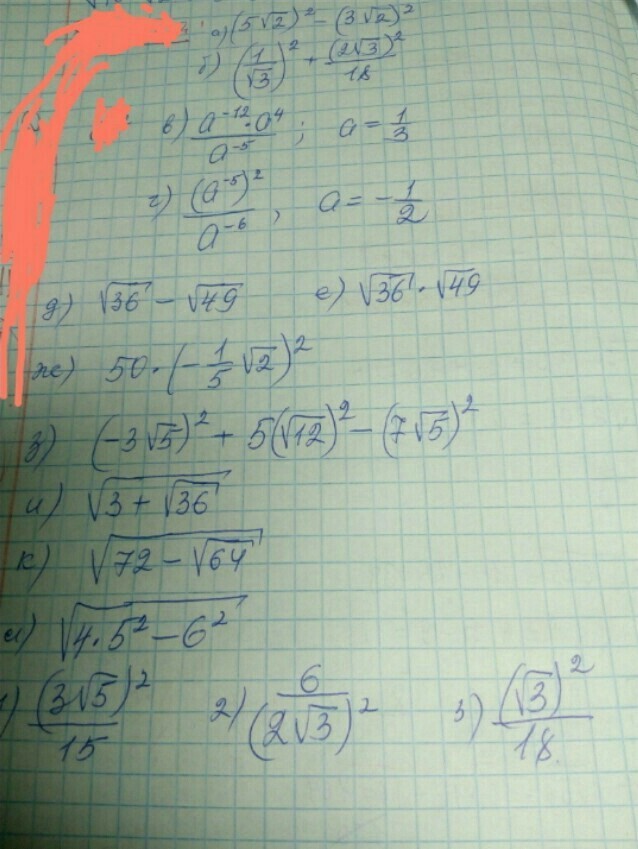 а) (5√2)² − (3√2)²
б) (1/√3)² + (2√3)²/18
в) a⁻¹²·a⁴/a⁻⁵ ; a = 1/3
г) (a⁻⁵)²/a⁻⁶ , a = −1/2
д) √36 − √49 е) √36 · √49
ж) 50·(−1/5 √2)²
з) (−3√5)² + 5(√12)² − (7√5)²
и) √(3 + √36)
к) √(72 − √64)
л) √(4·5² − 6²)
1) (3√5)²/15 2) 6/(2√3)² 3) (√3)²/18